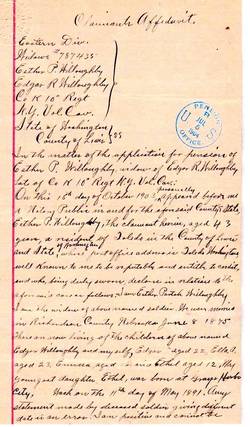 Claimants Affidavit.
Eastern Div.
Widows # 787435
Esther P. Willoughby
Edgar R Willoughby
Co K 10" Regt
N.Y. Vol. Cav.
State of Washington
County of Lewis } SS
PENSION
U S
JUL
6
1904
OFFICE
In the matter of the application for pension of
Esther P. Willoughby, widow of Edgar R. Willoughby
late of Co K 10" Regt N.Y. Vol. Cav.
On this 15th day of October 1903 personally appeared before me
a Notary Public in and for the aforesaid County & State
Esther P. Willoughby, the claimant herein, aged 43
years, a resident of Toledo in the County of Lewis
and State of Washington whose post office address is Toledo Washington
well known to me to be reputable and entitle to credit,
and who, being duly sworn, declare in relation to the
aforesaid case as follows: I am Esther P. Willoughby
I am the widow of above named soldier. We were married
in Richardson County, Nebraska June 8" 1875
There are now living of the children of above named
Edgar Willoughby and myself, Edgar aged 22,
aged 23, aged 18 Ethel aged 12. My
youngest daughter Ethel, was born at Grays Harbor
City, Wash on the day of May 1891. Any
statement made by deceased soldier giving different
date is an error. I am positive and cannot be